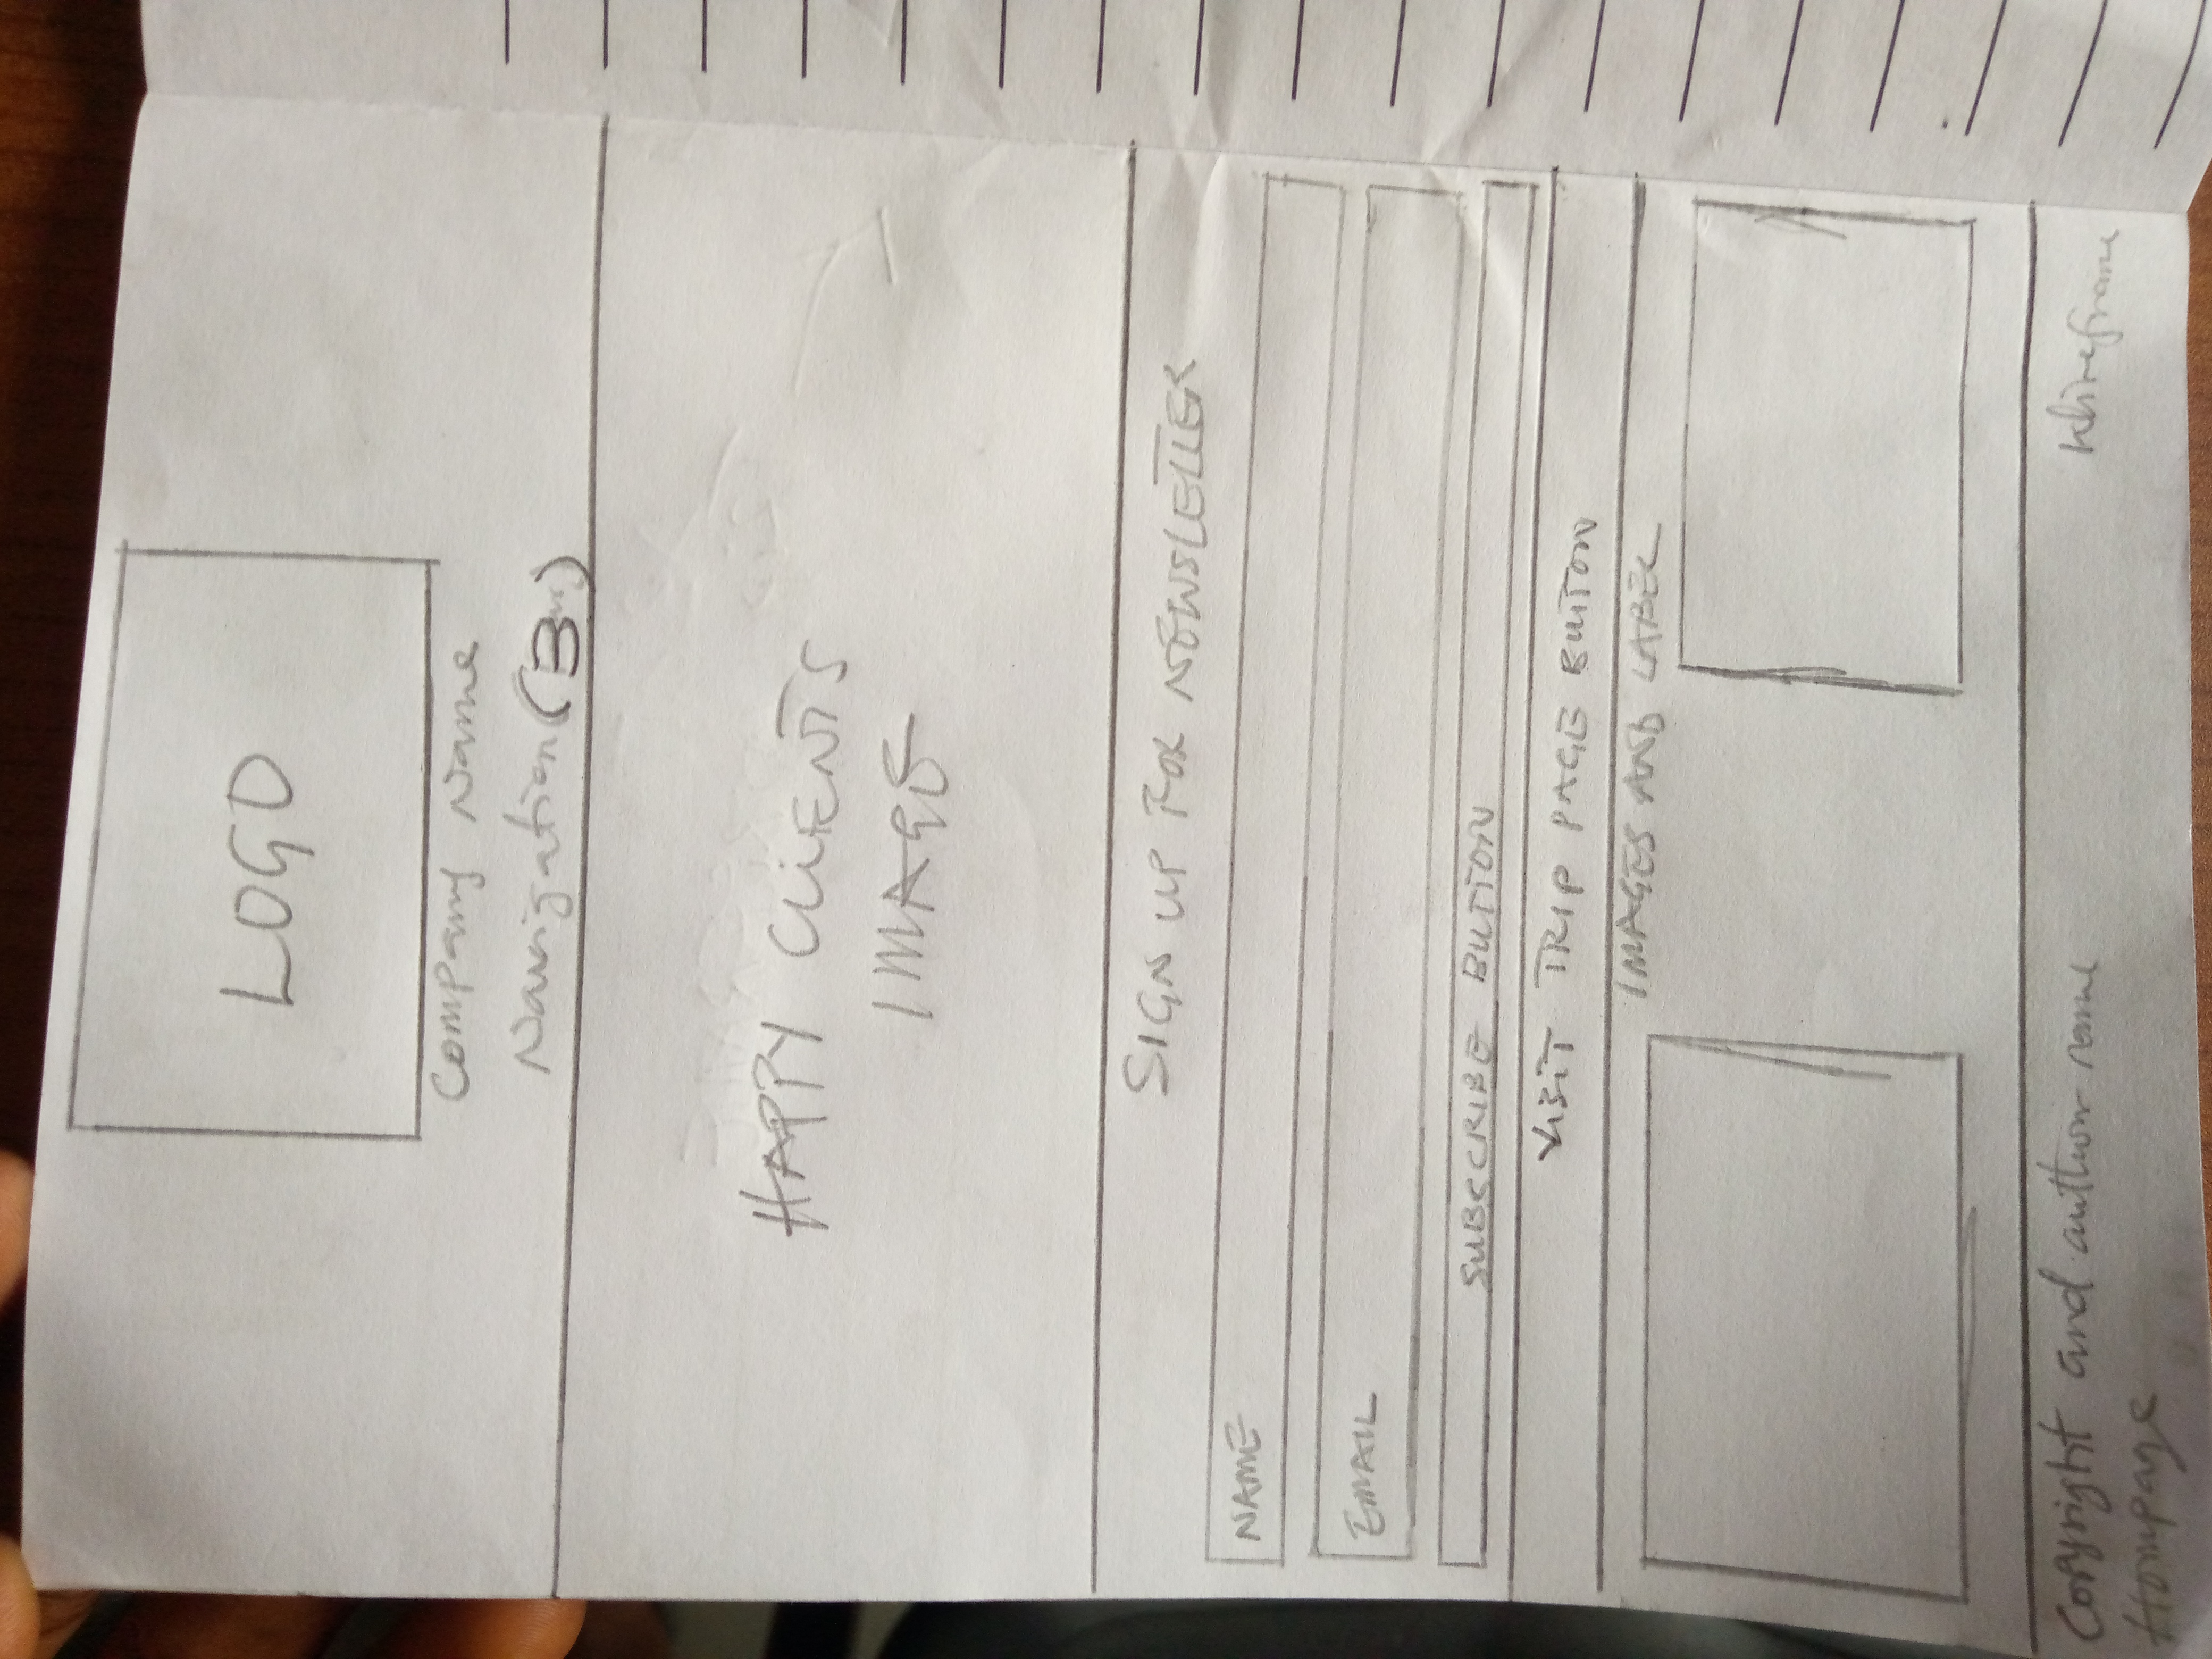 LOGO
Company Name
Navigation (3)
HAPPY CLIENTS
IMAGE
SIGN UP FOR NEWSLETTER
NAME
EMAIL
SUBSCRIBE BUTTON
VISIT TRIP PAGE BUTTON
IMAGES AND LABEL
Copyright and author name
Hompage
Wireframe